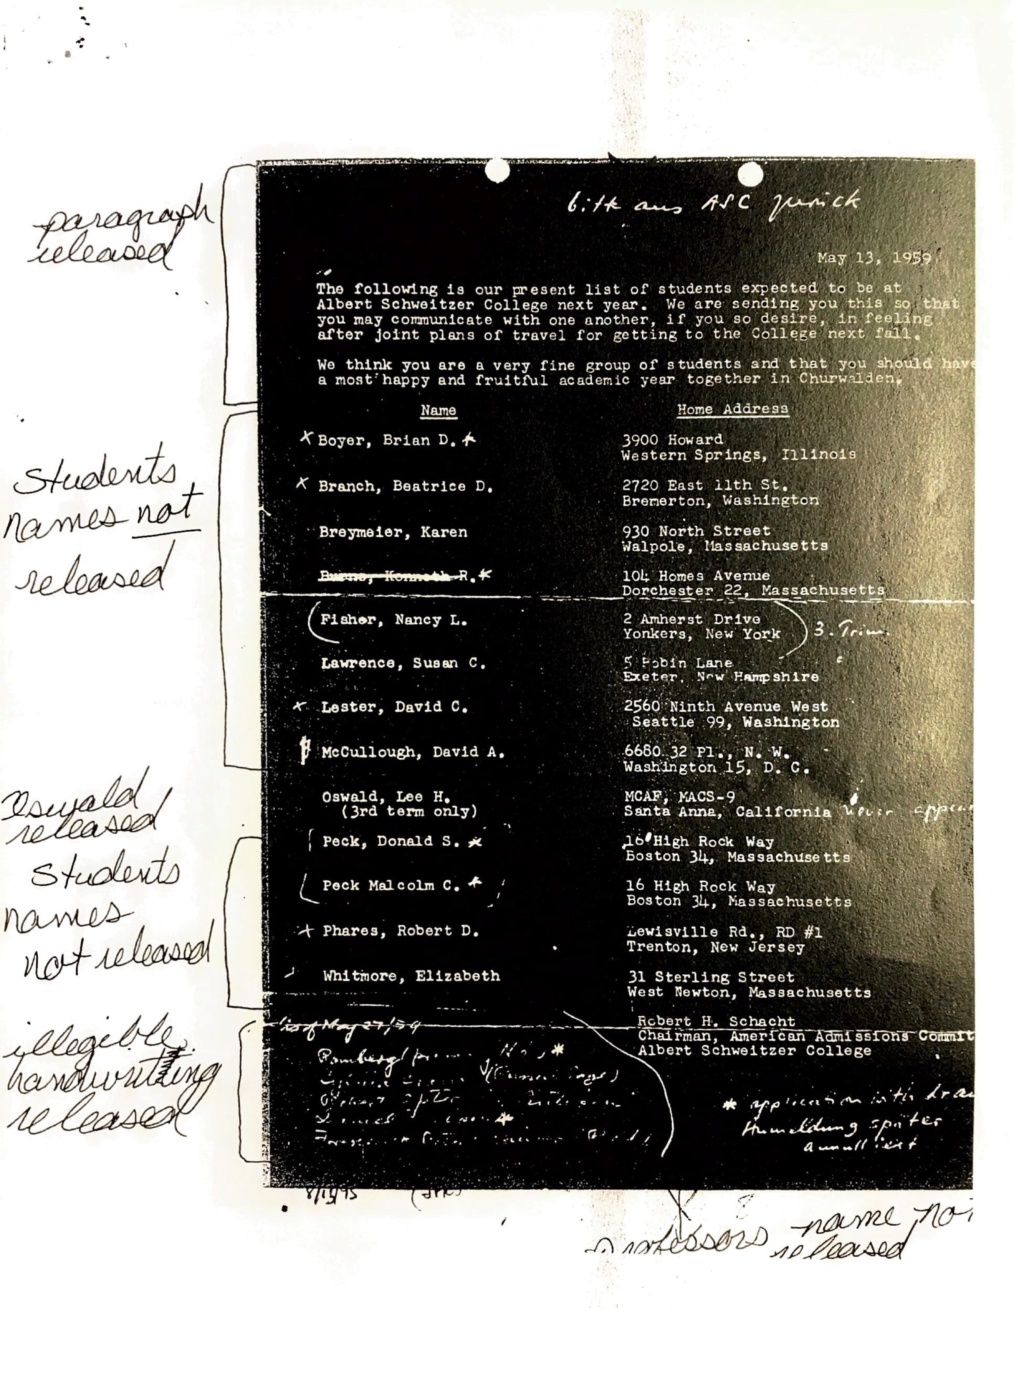 paragraph
released
bitte aus ASC zurück
May 13, 1959
The following is our present list of students expected to be at
Albert Schweitzer College next year. We are sending you this so that
you may communicate with one another, if you so desire, in feeling
after joint plans of travel for getting to the College next fall.
We think you are a very fine group of students and that you should have
a most happy and fruitful academic year together in Churwalden.
Name Home Address
Students
names not
released
x Boyer, Brian D. * 3900 Howard
Western Springs, Illinois
x Branch, Beatrice D. 2720 East 11th St.
Bremerton, Washington
Breymeier, Karen 930 North Street
Walpole, Massachusetts
Burns, Kenneth R. * 104 Homes Avenue
Dorchester 22, Massachusetts
(Fisher, Nancy L. 2 Amherst Drive
Yonkers, New York ) 3. Trim.
Lawrence, Susan C. 5 Robin Lane
Exeter, New Hampshire
x Lester, David C. 2560 Ninth Avenue West
Seattle 99, Washington
McCullough, David A. 6680 32 Pl., N. W.
Washington 15, D. C.
Oswald
released
Oswald, Lee H. MCAF, MACS-9
(3rd term only) Santa Anna, California never appea
Students
names
not released
Peck, Donald S. * 16 High Rock Way
Boston 34, Massachusetts
(Peck Malcolm C. * ) 16 High Rock Way
Boston 34, Massachusetts
x Phares, Robert D. Lewisville Rd., RD #1
Trenton, New Jersey
Whitmore, Elizabeth 31 Sterling Street
West Newton, Massachusetts
Robert H. Schacht
Chairman, American Admissions Committ
Albert Schweitzer College
illegible
handwriting
released
is of May 27/59
* application with
Anmeldung später
annulliert
8/15/95
professors name not
released